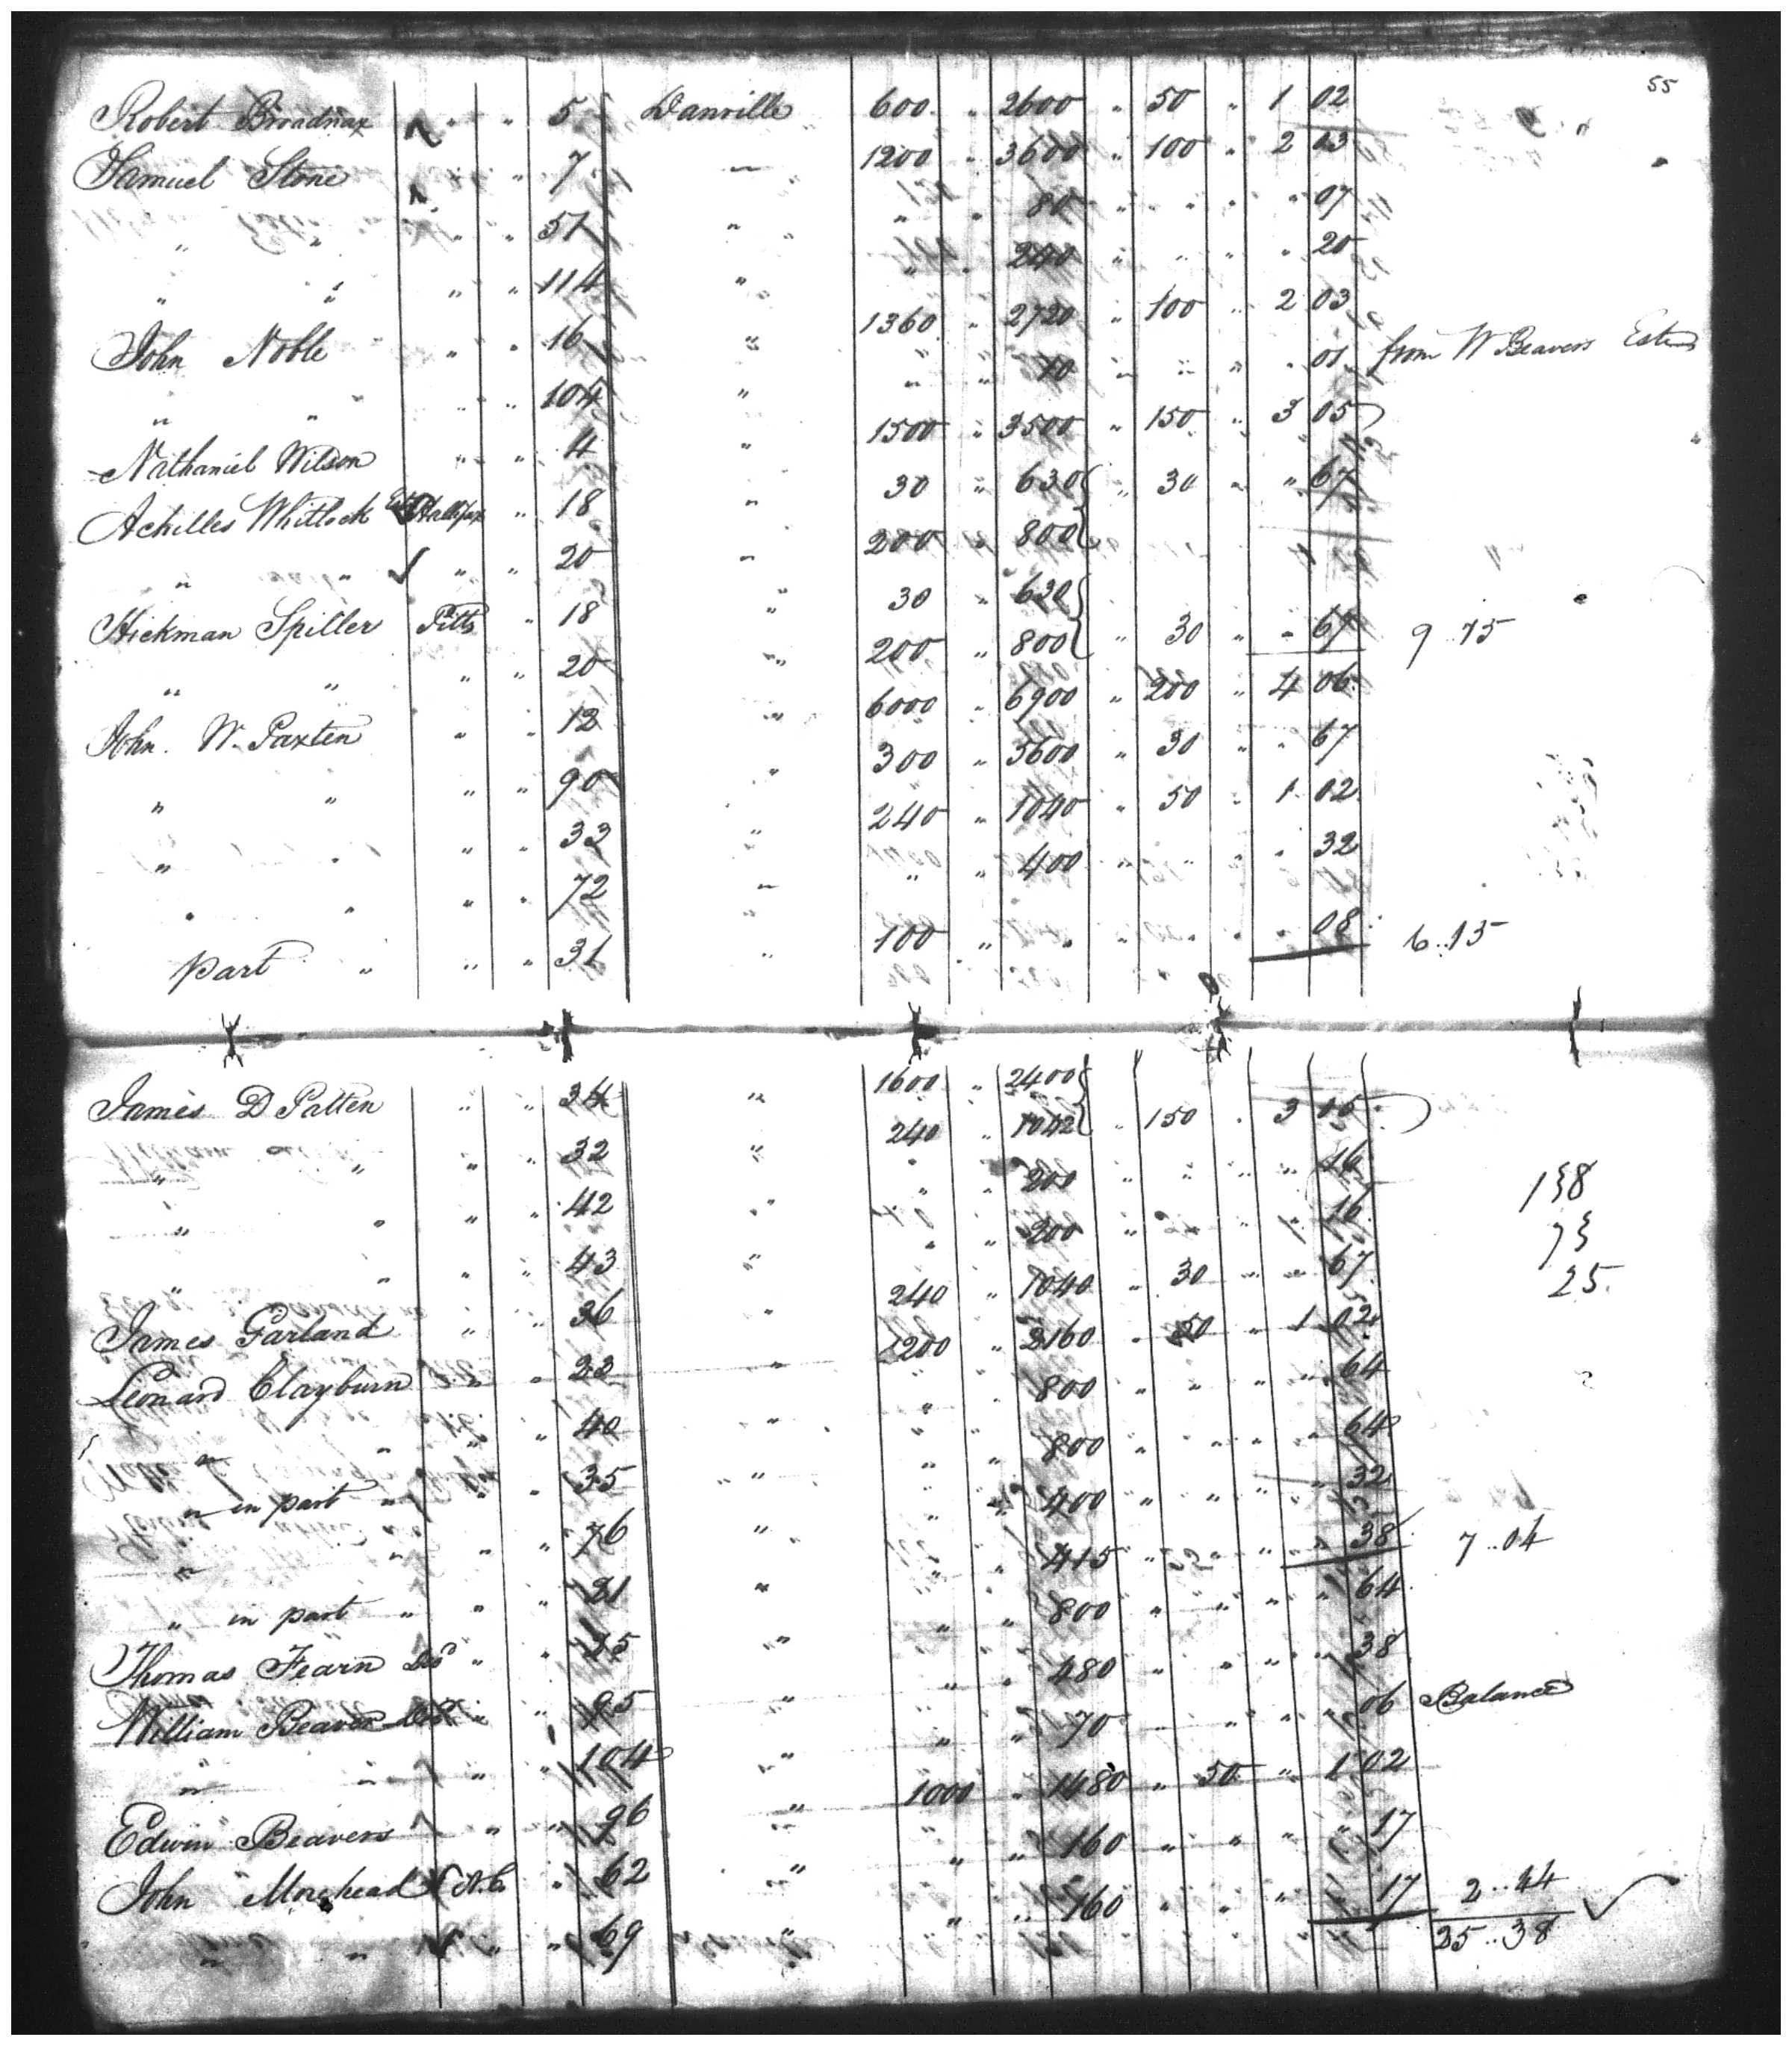 55
Robert Broadnax " " 5 Danville 600 " 2600 " 50 " 1 02
Samuel Stone " " 7 " 1200 " 3600 " 100 " 2 03
" " " " 51 " " " 80 " " " " 07
" " " " 114 " " " 240 " " " " 20
John Noble " " 16 " 1360 " 2720 " 100 " 2 03
" " " " 104 " " " 10 " " " " 01 from W Beavers Este
Nathaniel Wilson " " 4 " 1500 " 3500 " 150 " 3 05
Achilles Whitlock Est Hallifax " 18 " 30 " 630 " 30 " " 67
" " " " 20 " 200 " 800
Hickman Spiller Pitts " 18 " 30 " 630
" " " " 20 " 200 " 800 " 30 " " 67 9..75
John W. Paxten " " 12 " 6000 " 6900 " 200 " 4 06
" " " " 90 " 300 " 5600 " 30 " " 67
" " " " 32 " 240 " 1040 " 50 " 1 02
" " " " 72 " " " 400 " " " " 32
part " " " 31 " 100 " " " " " " 08 6..15
James D Patten " " 34 " 1600 " 2400
" " " " 32 " 240 " 1042 " 150 " 3 05
" " " " 42 " " " 200 " " " " 16 1}8
" " " " 43 " " " 200 " " " " 16 7}
James Garland " " 36 " 240 " 1040 " 30 " " 67 25.
Leonard Clayburn " " 22 " 1200 " 2160 " 50 " 1 02
" " " " 40 " " " 800 " " " " 64
" in part " " " 35 " " " 800 " " " " 64
" " " " 76 " " " 400 " " " " 32
" in part " " " 21 " " " 415 " " " " 38 7..04
Thomas Fearn Do " " 25 " " " 800 " " " " 64
William Beaver Do " " 95 " " " 480 " " " " 38
" " " " 104 " " " 70 " " " " 06 Balance
Edwin Beavers " " 96 " 1000 " 1480 " 50 " 1 02
John Morehead N.C. " 62 " " " 160 " " " " 17
" " " " 69 " " " 160 " " " " 17 2..44
25..38